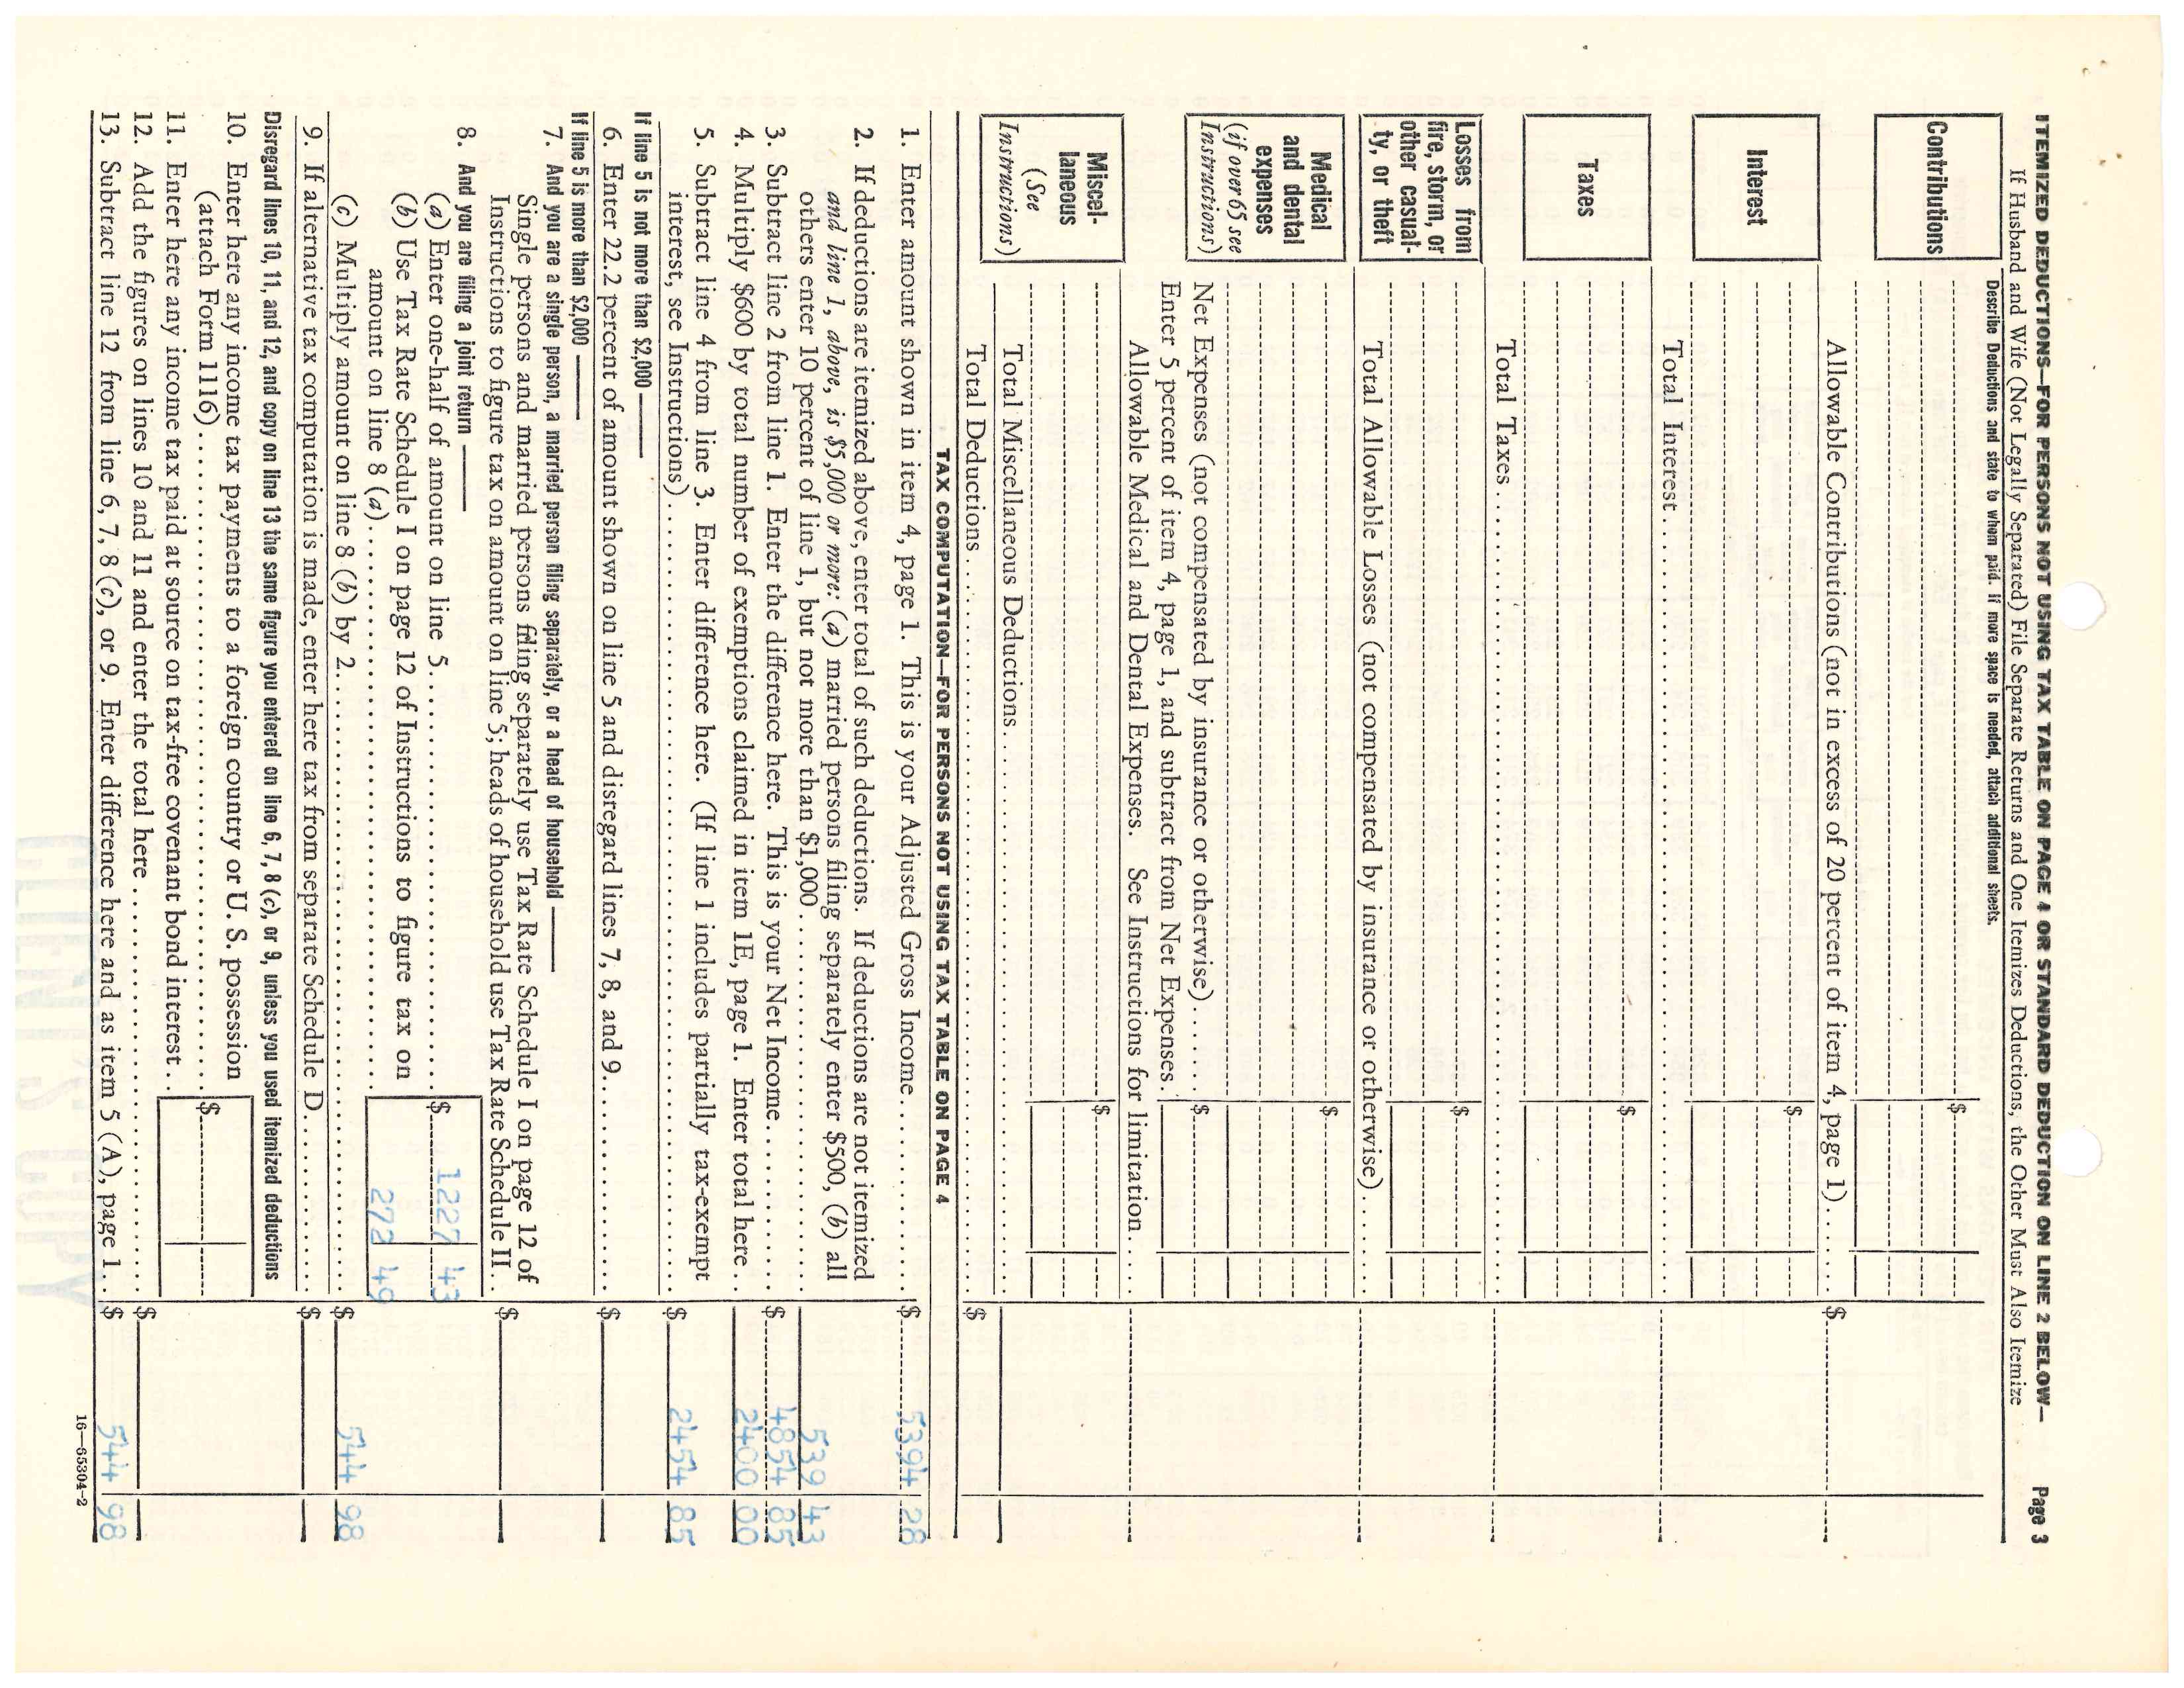 ITEMIZED DEDUCTIONS—FOR PERSONS NOT USING TAX TABLE ON PAGE 4 OR STANDARD DEDUCTION ON LINE 2 BELOW— Page 3
If Husband and Wife (Not Legally Separated) File Separate Returns and One Itemizes Deductions, the Other Must Also Itemize
Describe Deductions and state to whom paid. If more space is needed, attach additional sheets.
Contributions
$
Allowable Contributions (not in excess of 20 percent of item 4, page 1)....... $
Interest
$
Total Interest
Taxes
$
Total Taxes
Losses from
fire, storm, or
other casual-
ty, or theft
$
Total Allowable Losses (not compensated by insurance or otherwise)........
Medical
and dental
expenses
(if over 65 see
Instructions)
$
Net Expenses (not compensated by insurance or otherwise)....... $
Enter 5 percent of item 4, page 1, and subtract from Net Expenses.
Allowable Medical and Dental Expenses. See Instructions for limitation.....
Miscel-
laneous
(See
Instructions)
$
Total Miscellaneous Deductions
Total Deductions $
TAX COMPUTATION—FOR PERSONS NOT USING TAX TABLE ON PAGE 4
1. Enter amount shown in item 4, page 1. This is your Adjusted Gross Income............... $ 5394 28
2. If deductions are itemized above, enter total of such deductions. If deductions are not itemized
and line 1, above, is $5,000 or more: (a) married persons filing separately enter $500, (b) all
others enter 10 percent of line 1, but not more than $1,000 539 43
3. Subtract line 2 from line 1. Enter the difference here. This is your Net Income............. $ 4854 85
4. Multiply $600 by total number of exemptions claimed in item 1E, page 1. Enter total here.. 2400 00
5. Subtract line 4 from line 3. Enter difference here. (If line 1 includes partially tax-exempt
interest, see Instructions) $ 2454 85
If line 5 is not more than $2,000 —
6. Enter 22.2 percent of amount shown on line 5 and disregard lines 7, 8, and 9................ $
If line 5 is more than $2,000 —
7. And you are a single person, a married person filing separately, or a head of household —
Single persons and married persons filing separately use Tax Rate Schedule I on page 12 of
Instructions to figure tax on amount on line 5; heads of household use Tax Rate Schedule II.. $
8. And you are filing a joint return —
(a) Enter one-half of amount on line 5 $ 1227 43
(b) Use Tax Rate Schedule I on page 12 of Instructions to figure tax on
amount on line 8 (a) 272 49
(c) Multiply amount on line 8 (b) by 2 $ 544 98
9. If alternative tax computation is made, enter here tax from separate Schedule D.............. $
Disregard lines 10, 11, and 12, and copy on line 13 the same figure you entered on line 6, 7, 8 (c), or 9, unless you used itemized deductions
10. Enter here any income tax payments to a foreign country or U. S. possession
(attach Form 1116) $
11. Enter here any income tax paid at source on tax-free covenant bond interest..
12. Add the figures on lines 10 and 11 and enter the total here $
13. Subtract line 12 from line 6, 7, 8 (c), or 9. Enter difference here and as item 5 (A), page 1.. $ 544 98
16—65304-2
CLIENT'S COPY